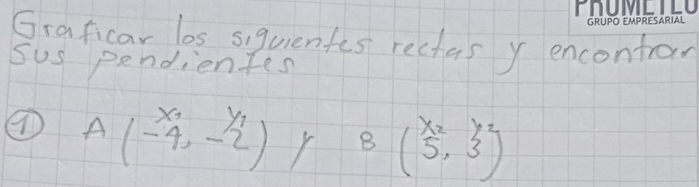 PROMETEO
GRUPO EMPRESARIAL
Graficar los siguientes rectas y encontrar
sus pendientes
① A (-4, -2) y B (5, 3)
x₁ y₁ x₂ y₂